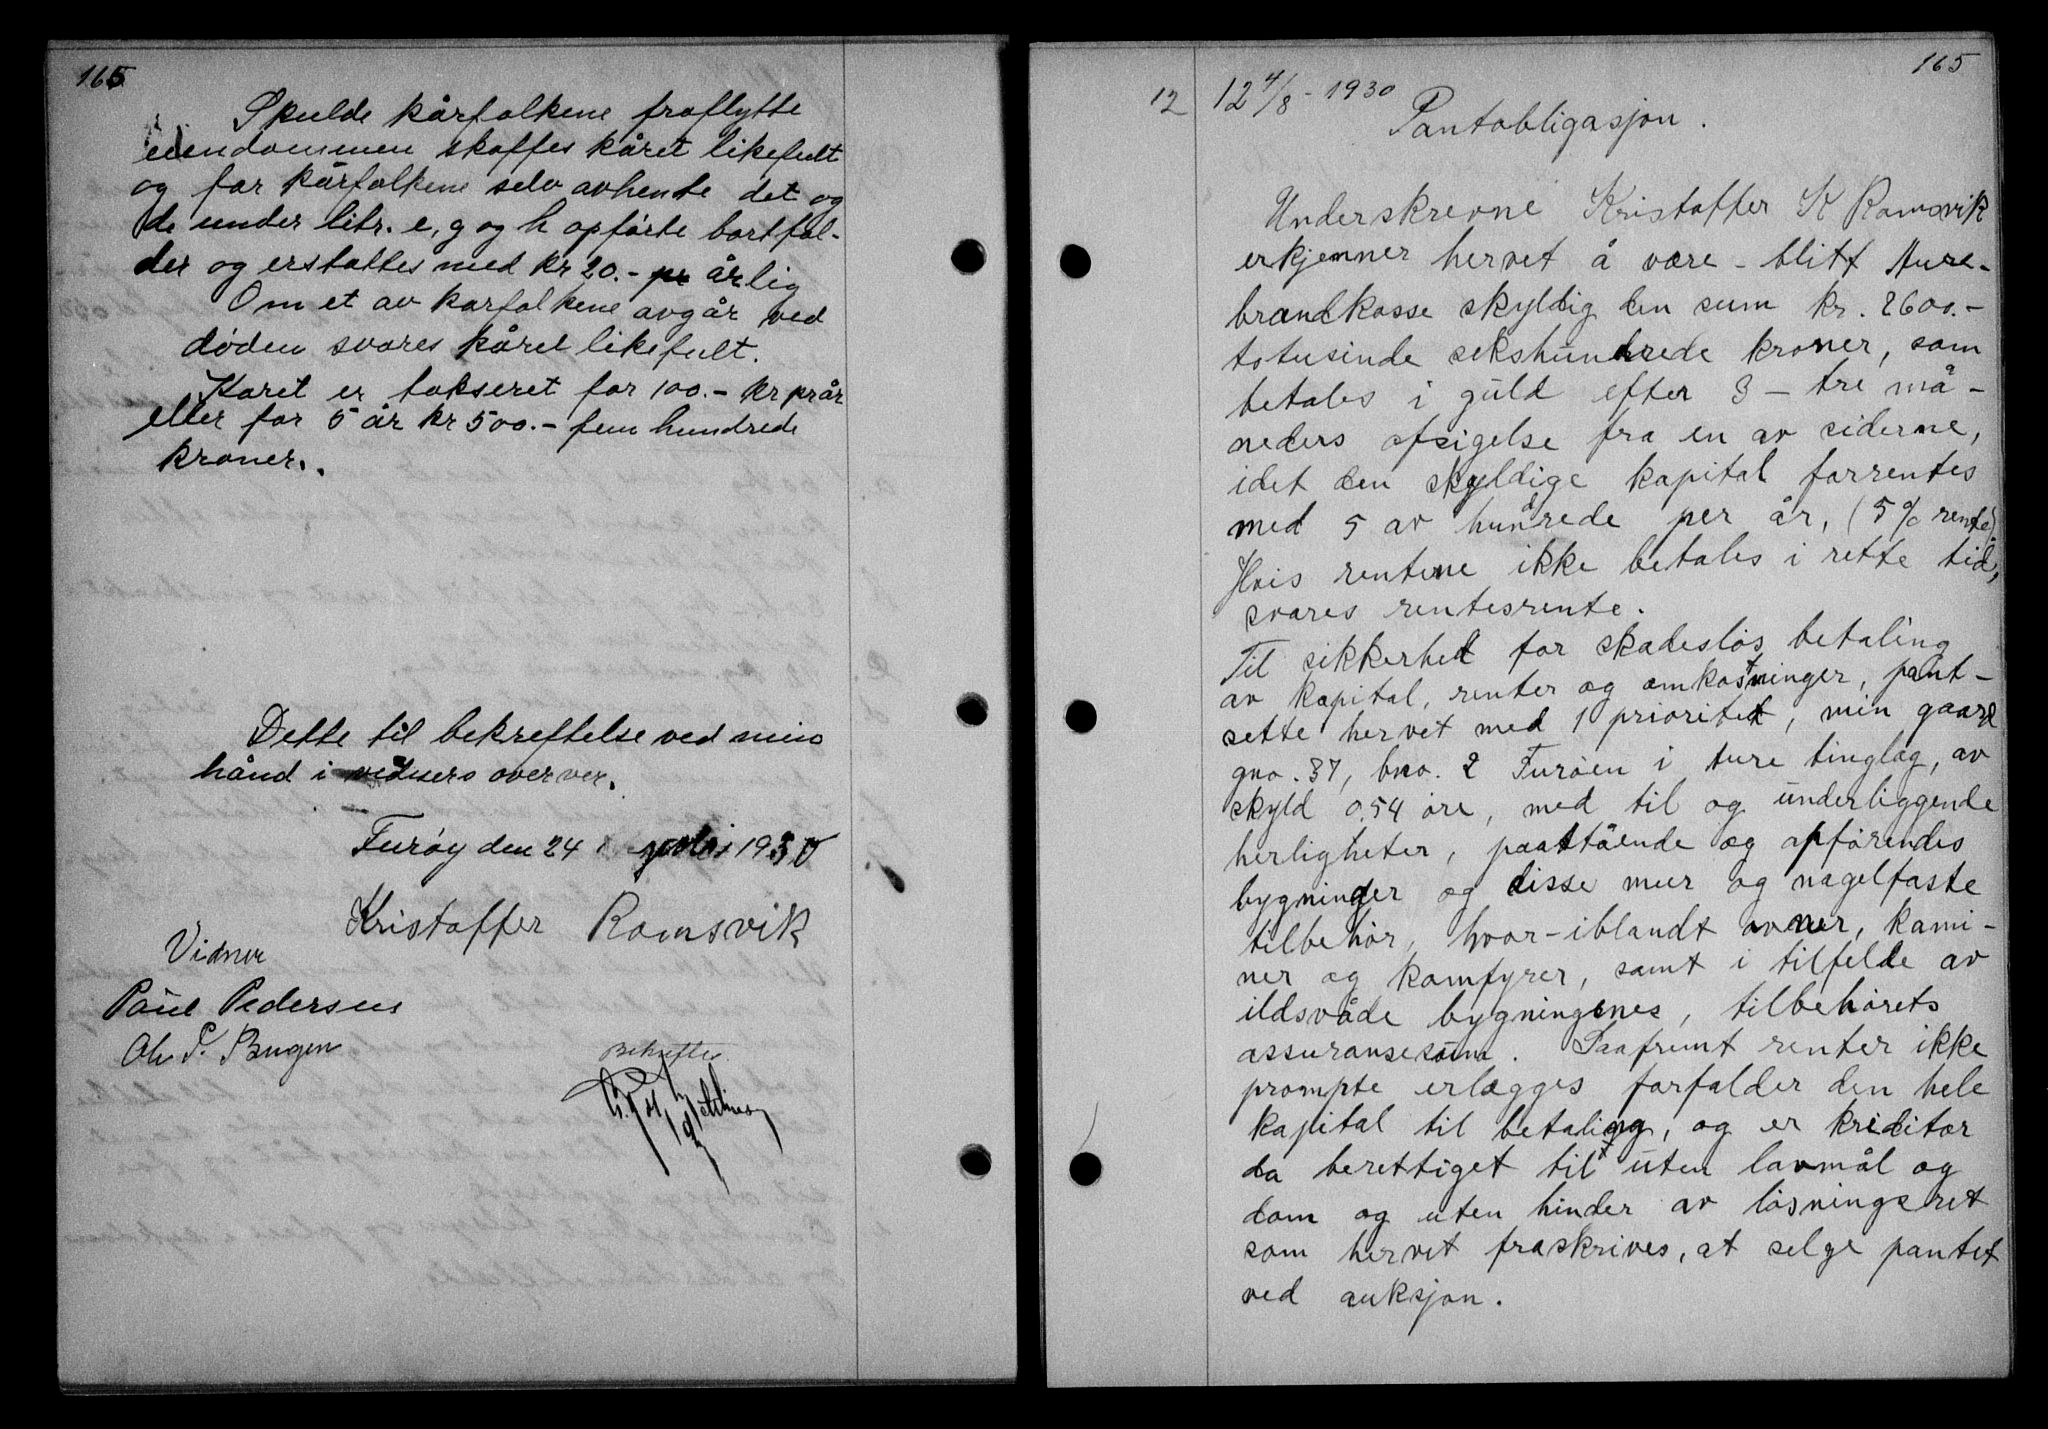 165
Skulde kårfolkene fraflytte
eiendommen skaffes kåret likefult
og får kårfolkene selv avhente det og
de under litr. e, g og h opførte bortfal-
der og erstattes med kr 20.- årlig
Om et av kårfolkene avgår ved
døden svares kåret likefult.
Kåret er takseret for 100.- kr pr år
eller for 5 år kr 500.- fem hundrede
kroner.
Dette til bekreftelse ved min
hånd i vidners overvær.
Furøy den 24 1930
Kristoffer Ramsvik
Vidner
Paul Pedersen
Ole P. Bugen
Bekreftes
165
12
12 4/8 - 1930
Pantobligasjon.
Underskrevne Kristoffer K Ramsvik
erkjenner hervet å være - blitt Aure-
brandkasse skyldig den sum kr. 2600.-
totusinde sekshundrede kroner, som
betales i guld efter 3 - tre må-
neders opsigelse fra en av siderne,
idet den skyldige kapital forrentes
med 5 av hundrede per år, (5% rente)
Hvis rentene ikke betales i rette tid,
svares rentesrente.
Til sikkerhet for skadesløs betaling
av kapital, renter og omkostninger, pant-
sette hervet med 1 prioritet, min gaard
gno. 37, bno. 2 Furøen i ture tinglag, av
skyld 0.54 øre, med til og underliggende
herligheter, paastående og opførendes
bygninger og disse mur og nagelfaste
tilbehør, hvor-iblandt ovner, kami-
ner og komfyrer, samt i tilfelde av
ildsvåde bygningenes, tilbehørets
assuransesum. Saafremt renter ikke
prompte erlægges forfalder den hele
kapital til betaling, og er kreditor
da berettiget til uten lovmål og
dom og uten hinder av løsningsret
som hervet fraskrives, at selge pantet
ved auksjon.